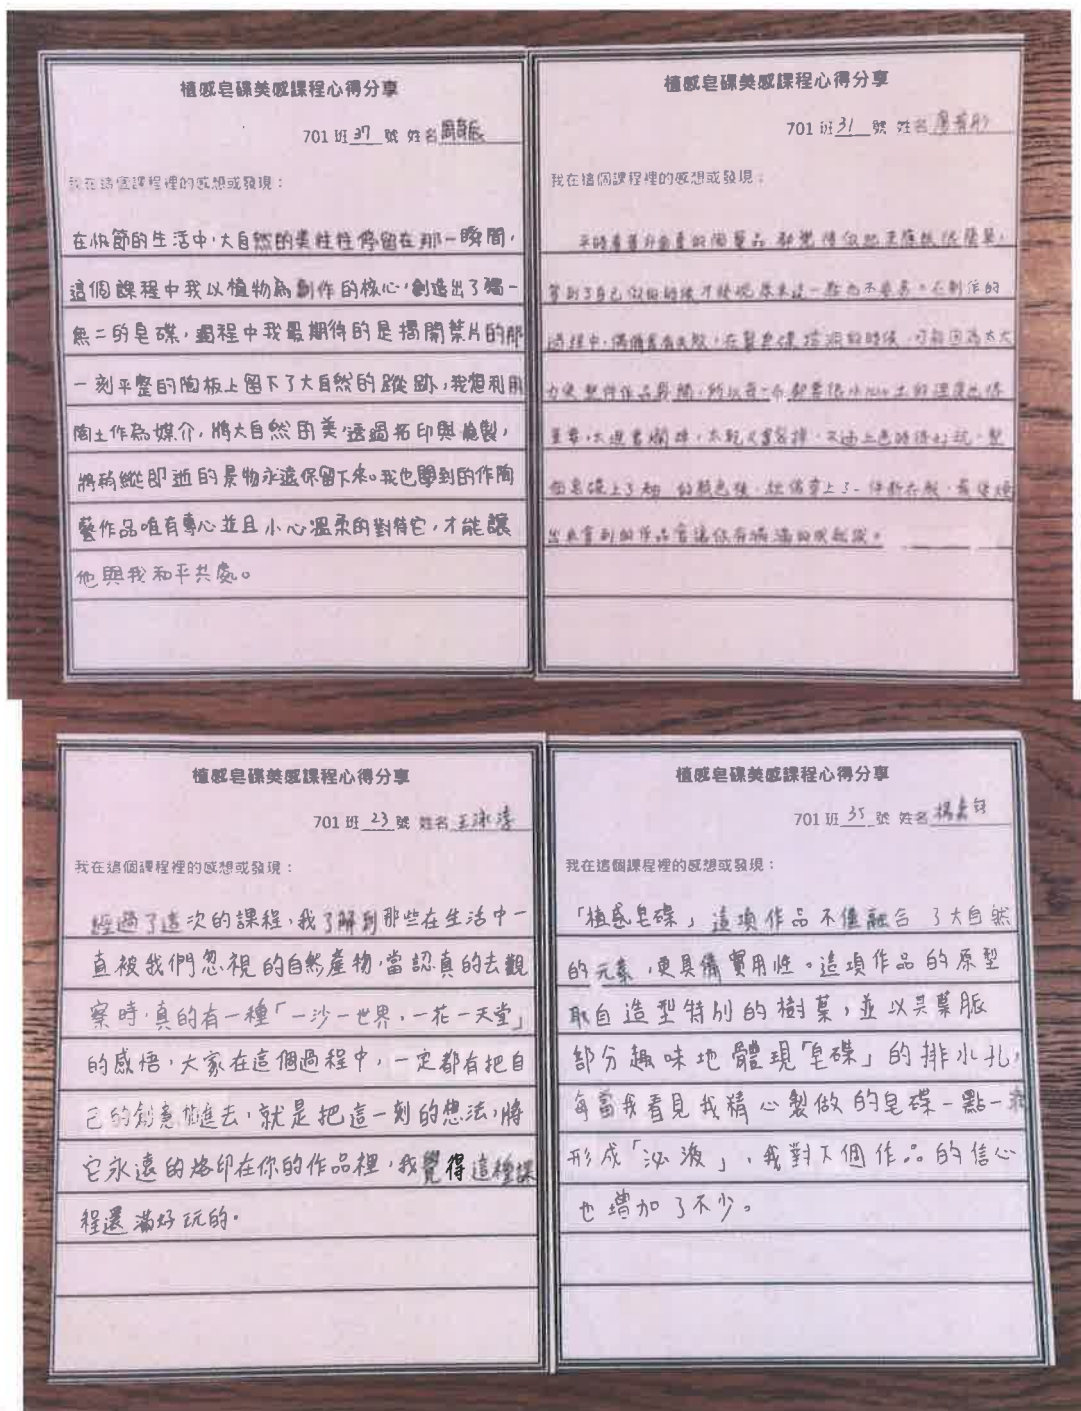 植感皂碟美感課程心得分享
701 班 37 號 姓名
我在這個課程裡的感想或發現：
在快節的生活中，大自然的美往往停留在那一瞬間，
這個課程中我以植物為創作的核心，創造出了獨一
無二的皂碟，過程中我最期待的是揭開葉片的那
一刻平整的陶板上留下了大自然的蹤跡，我想利用
陶土作為媒介，將大自然的美，透過拓印與複製，
將稍縱即逝的景物永遠保留下來。我也學到的作陶
藝作品唯有專心並且小心溫柔的對待它，才能讓
他與我和平共處。
植感皂碟美感課程心得分享
701 班 31 號 姓名
我在這個課程裡的感想或發現：
平時看著外面賣的陶藝品 都覺得做起來應該很簡單，
等到了自己做的時候才發現原來這一點也不容易。在制作的
過程中，偶爾會有失敗，在幫皂碟挖洞的時候，可能因為太大
力使整件作品
重要，太濕會爛掉，太乾又會裂掉，
個皂碟上了釉 的顏色後，就像穿上了一件新衣服，最後燒
出來拿到的作品會讓你有滿滿的成就感。
植感皂碟美感課程心得分享
701 班 23 號 姓名 王
我在這個課程裡的感想或發現：
經過了這次的課程，我了解到那些在生活中一
直被我們忽視的自然產物，當認真的去觀
察時，真的有一種「一沙一世界，一花一天堂」
的感悟，大家在這個過程中，一定都有把自
己的創意加進去，就是把這一刻的想法，將
它永遠的烙印在你的作品裡，我覺得這種課
程還滿好玩的。
植感皂碟美感課程心得分享
701 班 35 號 姓名 楊
我在這個課程裡的感想或發現：
「植感皂碟」這項作品不僅融合了大自然
的元素，更具備實用性。這項作品的原型
取自造型特別的樹葉，並以其葉脈
部分趣味地體現「皂碟」的排水孔，
每當我看見我精心製做的皂碟一點一滴
形成「泌液」，我對下個作品的信心
也增加了不少。